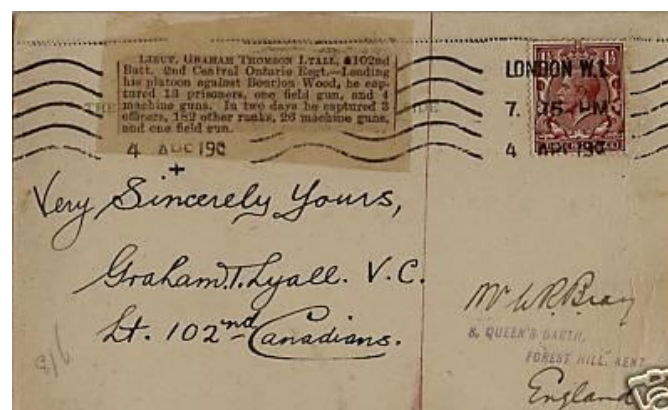 LIEUT. GRAHAM THOMSON LYALL, 102nd
Batt. 2nd Central Ontario Regt.—Leading
his platoon against Bourlon Wood, he cap-
tured 13 prisoners, one field gun, and
machine guns. In two days he captured 3
officers, 182 other ranks, 26 machine guns,
and one field gun.
LONDON W.1.
7. 15 PM
4 APR 19
4 19
Very Sincerely Yours,
Graham T. Lyall. V.C.
Lt. 102nd Canadians.
Mr W.R. Bray
8, QUEEN'S GARTH,
FOREST HILL, KENT
England